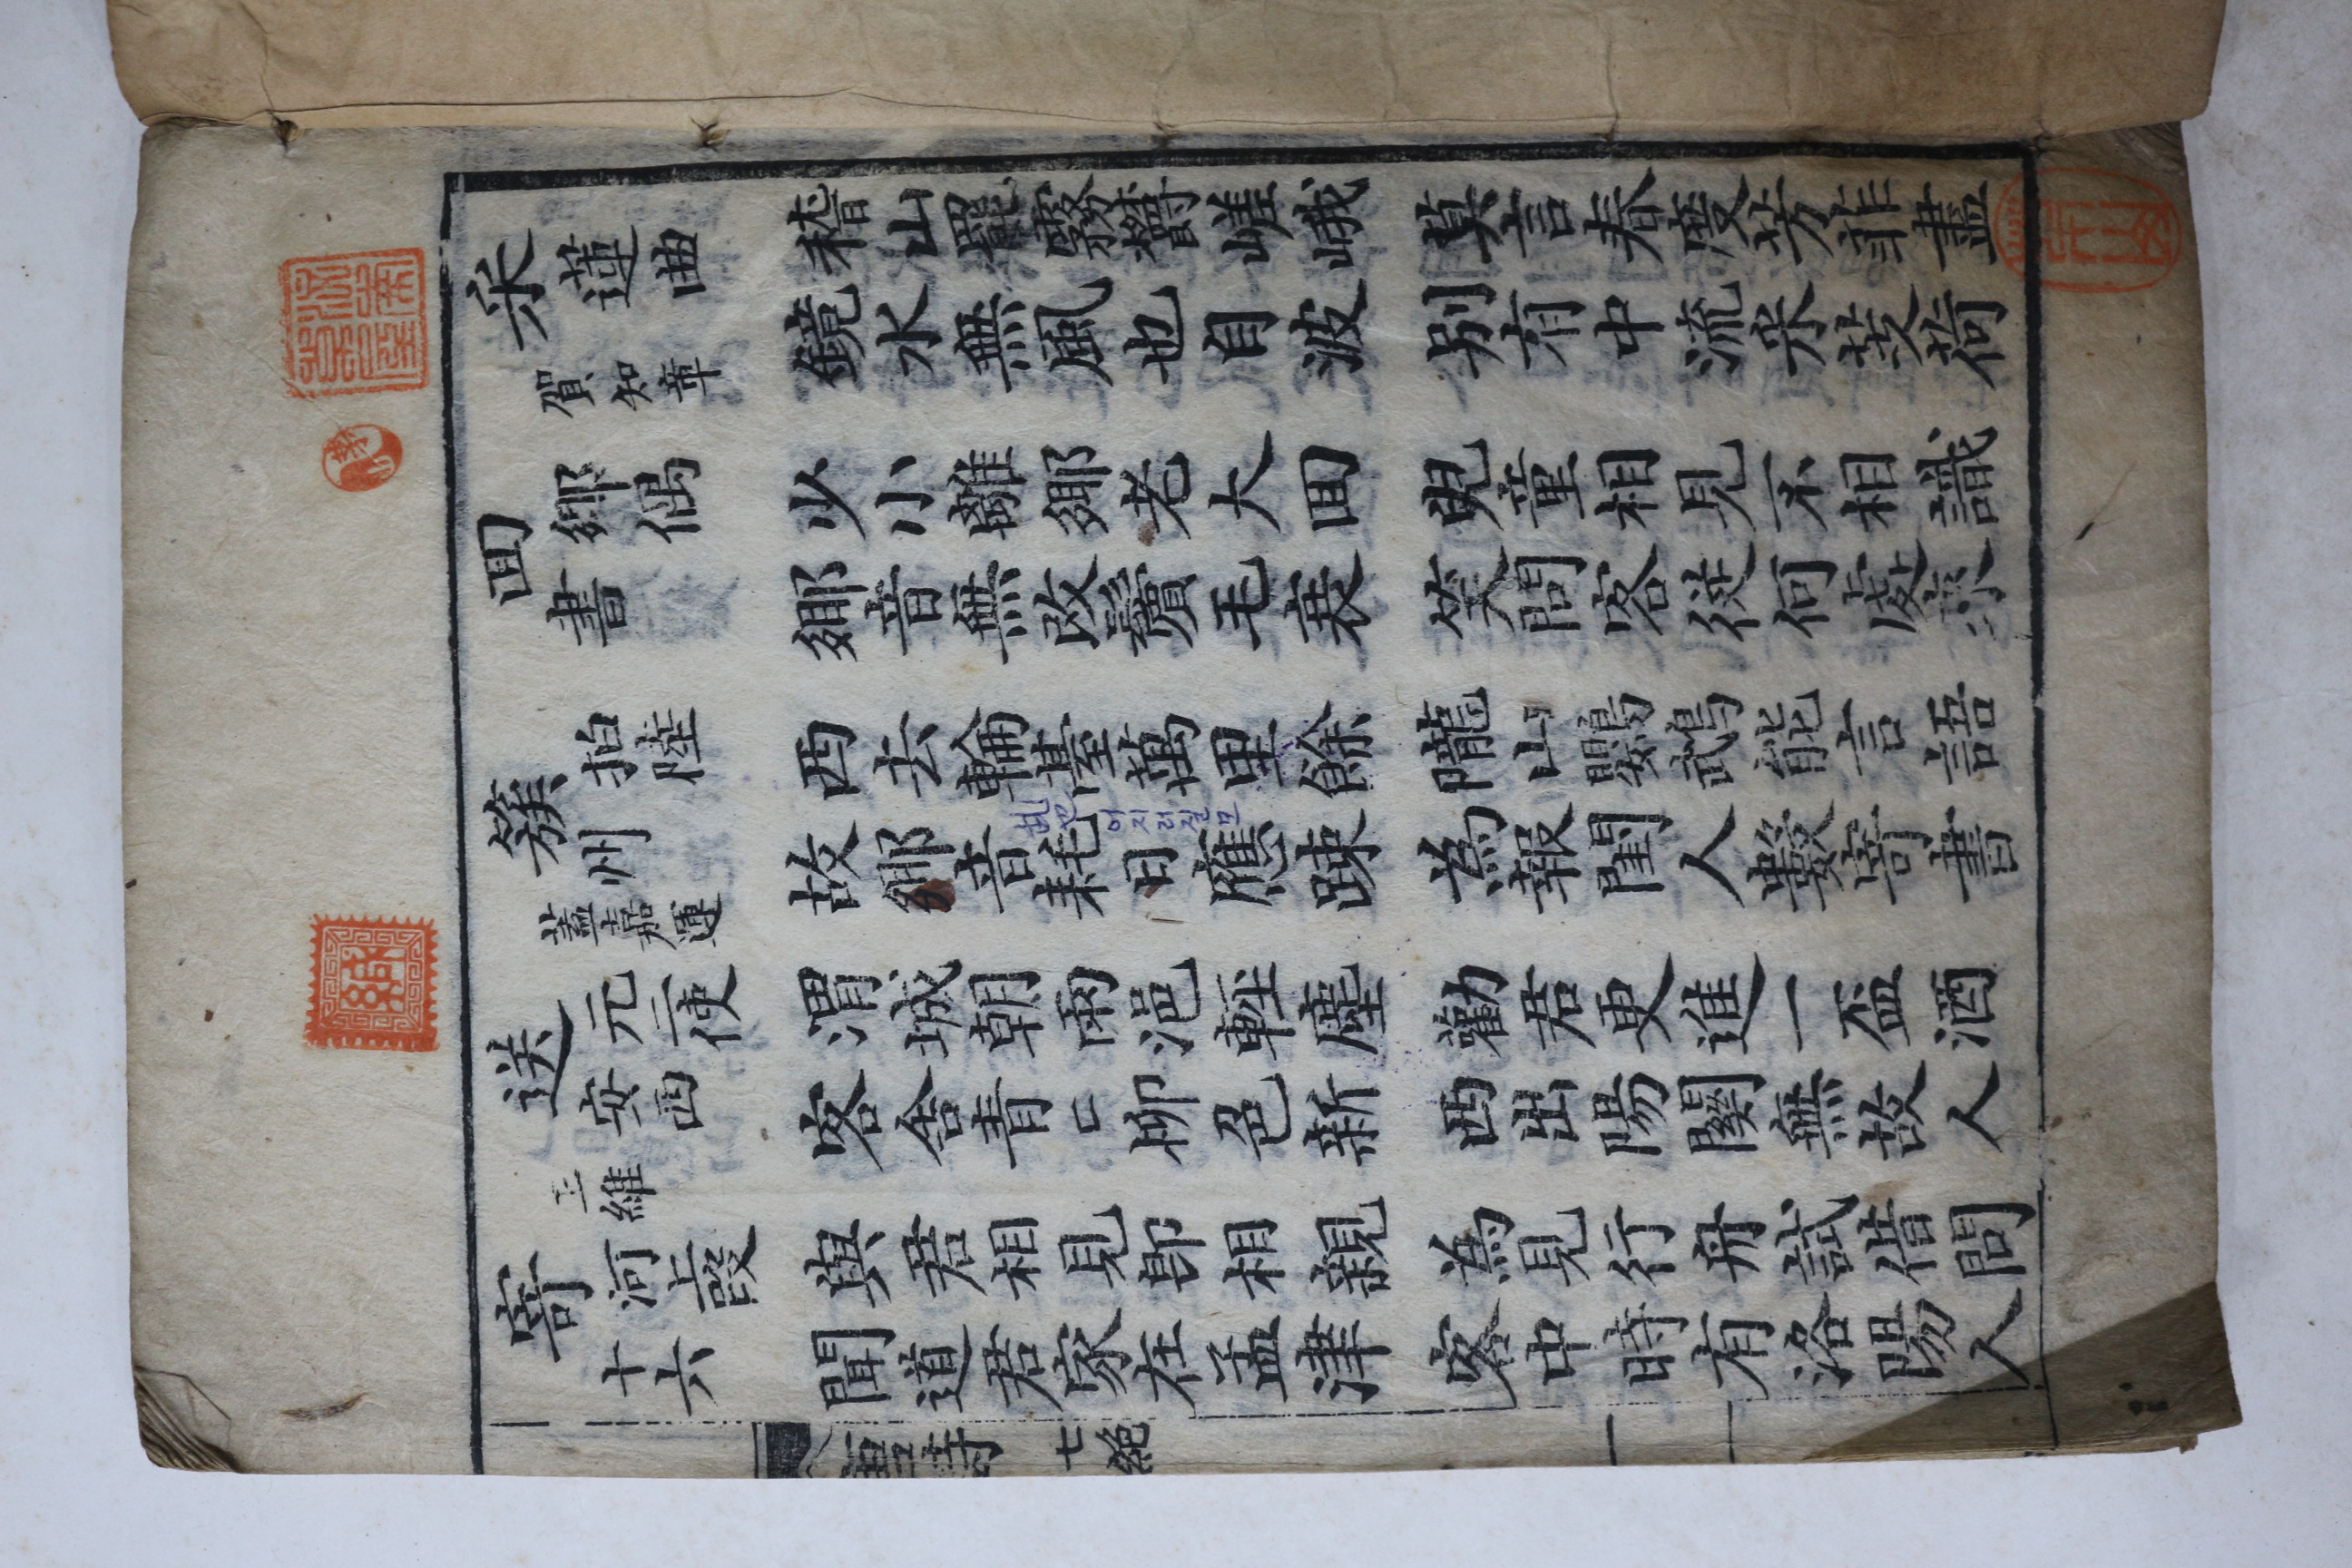 采蓮曲
賀知章
稽山罷霧鬱嵯峨 莫言春度芳菲盡
鏡水無風也自波 別有中流采芰荷
回鄉偶
書
少小離鄉老大回 兒童相見不相識
鄉音無改鬢毛衰 笑問客從何處來
簇拍陸
州
蓋嘉運
西去輪臺萬里餘 隴山鸚鵡能言語
어지러질모
故鄉音耗日應踈 為報閨人數寄書
送元二使
安西
王維
渭城朝雨浥輕塵 勸君更進一盃酒
客舍青〻柳色新 西出陽關無故人
寄河上段
十六
與君相見即相親 為見行舟試借問
聞道君家在孟津 客中時有洛陽人
七絕 一